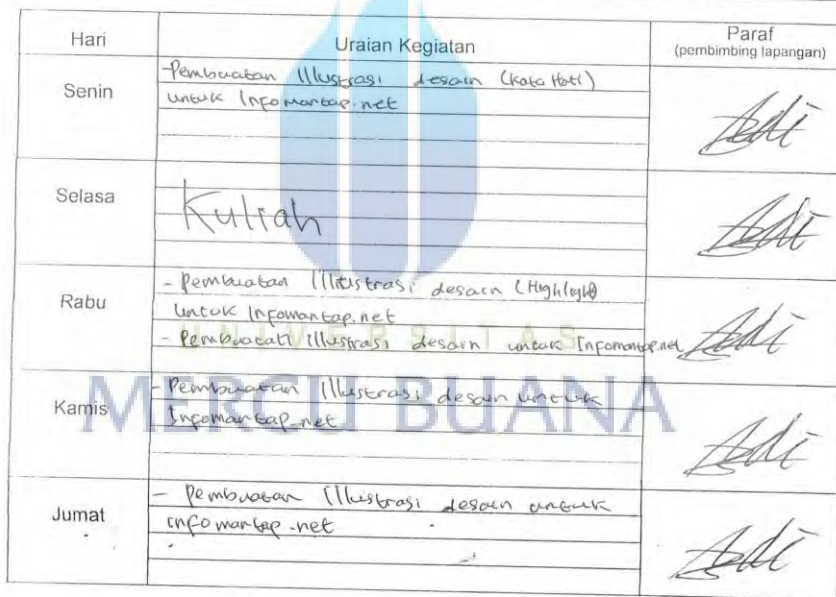 Hari Uraian Kegiatan Paraf
(pembimbing lapangan)
Senin
-Pembuatan Illustrasi desain (Kata Hati)
untuk Infomantap.net
Selasa
Kuliah
Rabu
- Pembuatan Illustrasi desain (Highlight)
untuk Infomantap.net
- Pembuatan Illustrasi desain untuk Infomantap.net
UNIVERSITAS
MERCU BUANA
Kamis
- Pembuatan Illustrasi desain untuk
Infomantap.net
Jumat
- Pembuatan Illustrasi desain untuk
infomantap.net